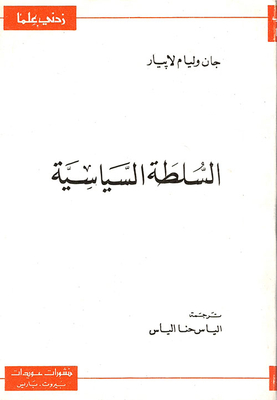 زدني علما
جان وليام لاپيار
السُّلطَة السَّيَاسِيَّة
تَرجَمَة
الياس حنا الياس
منشورات عويدات
بيروت، باريس